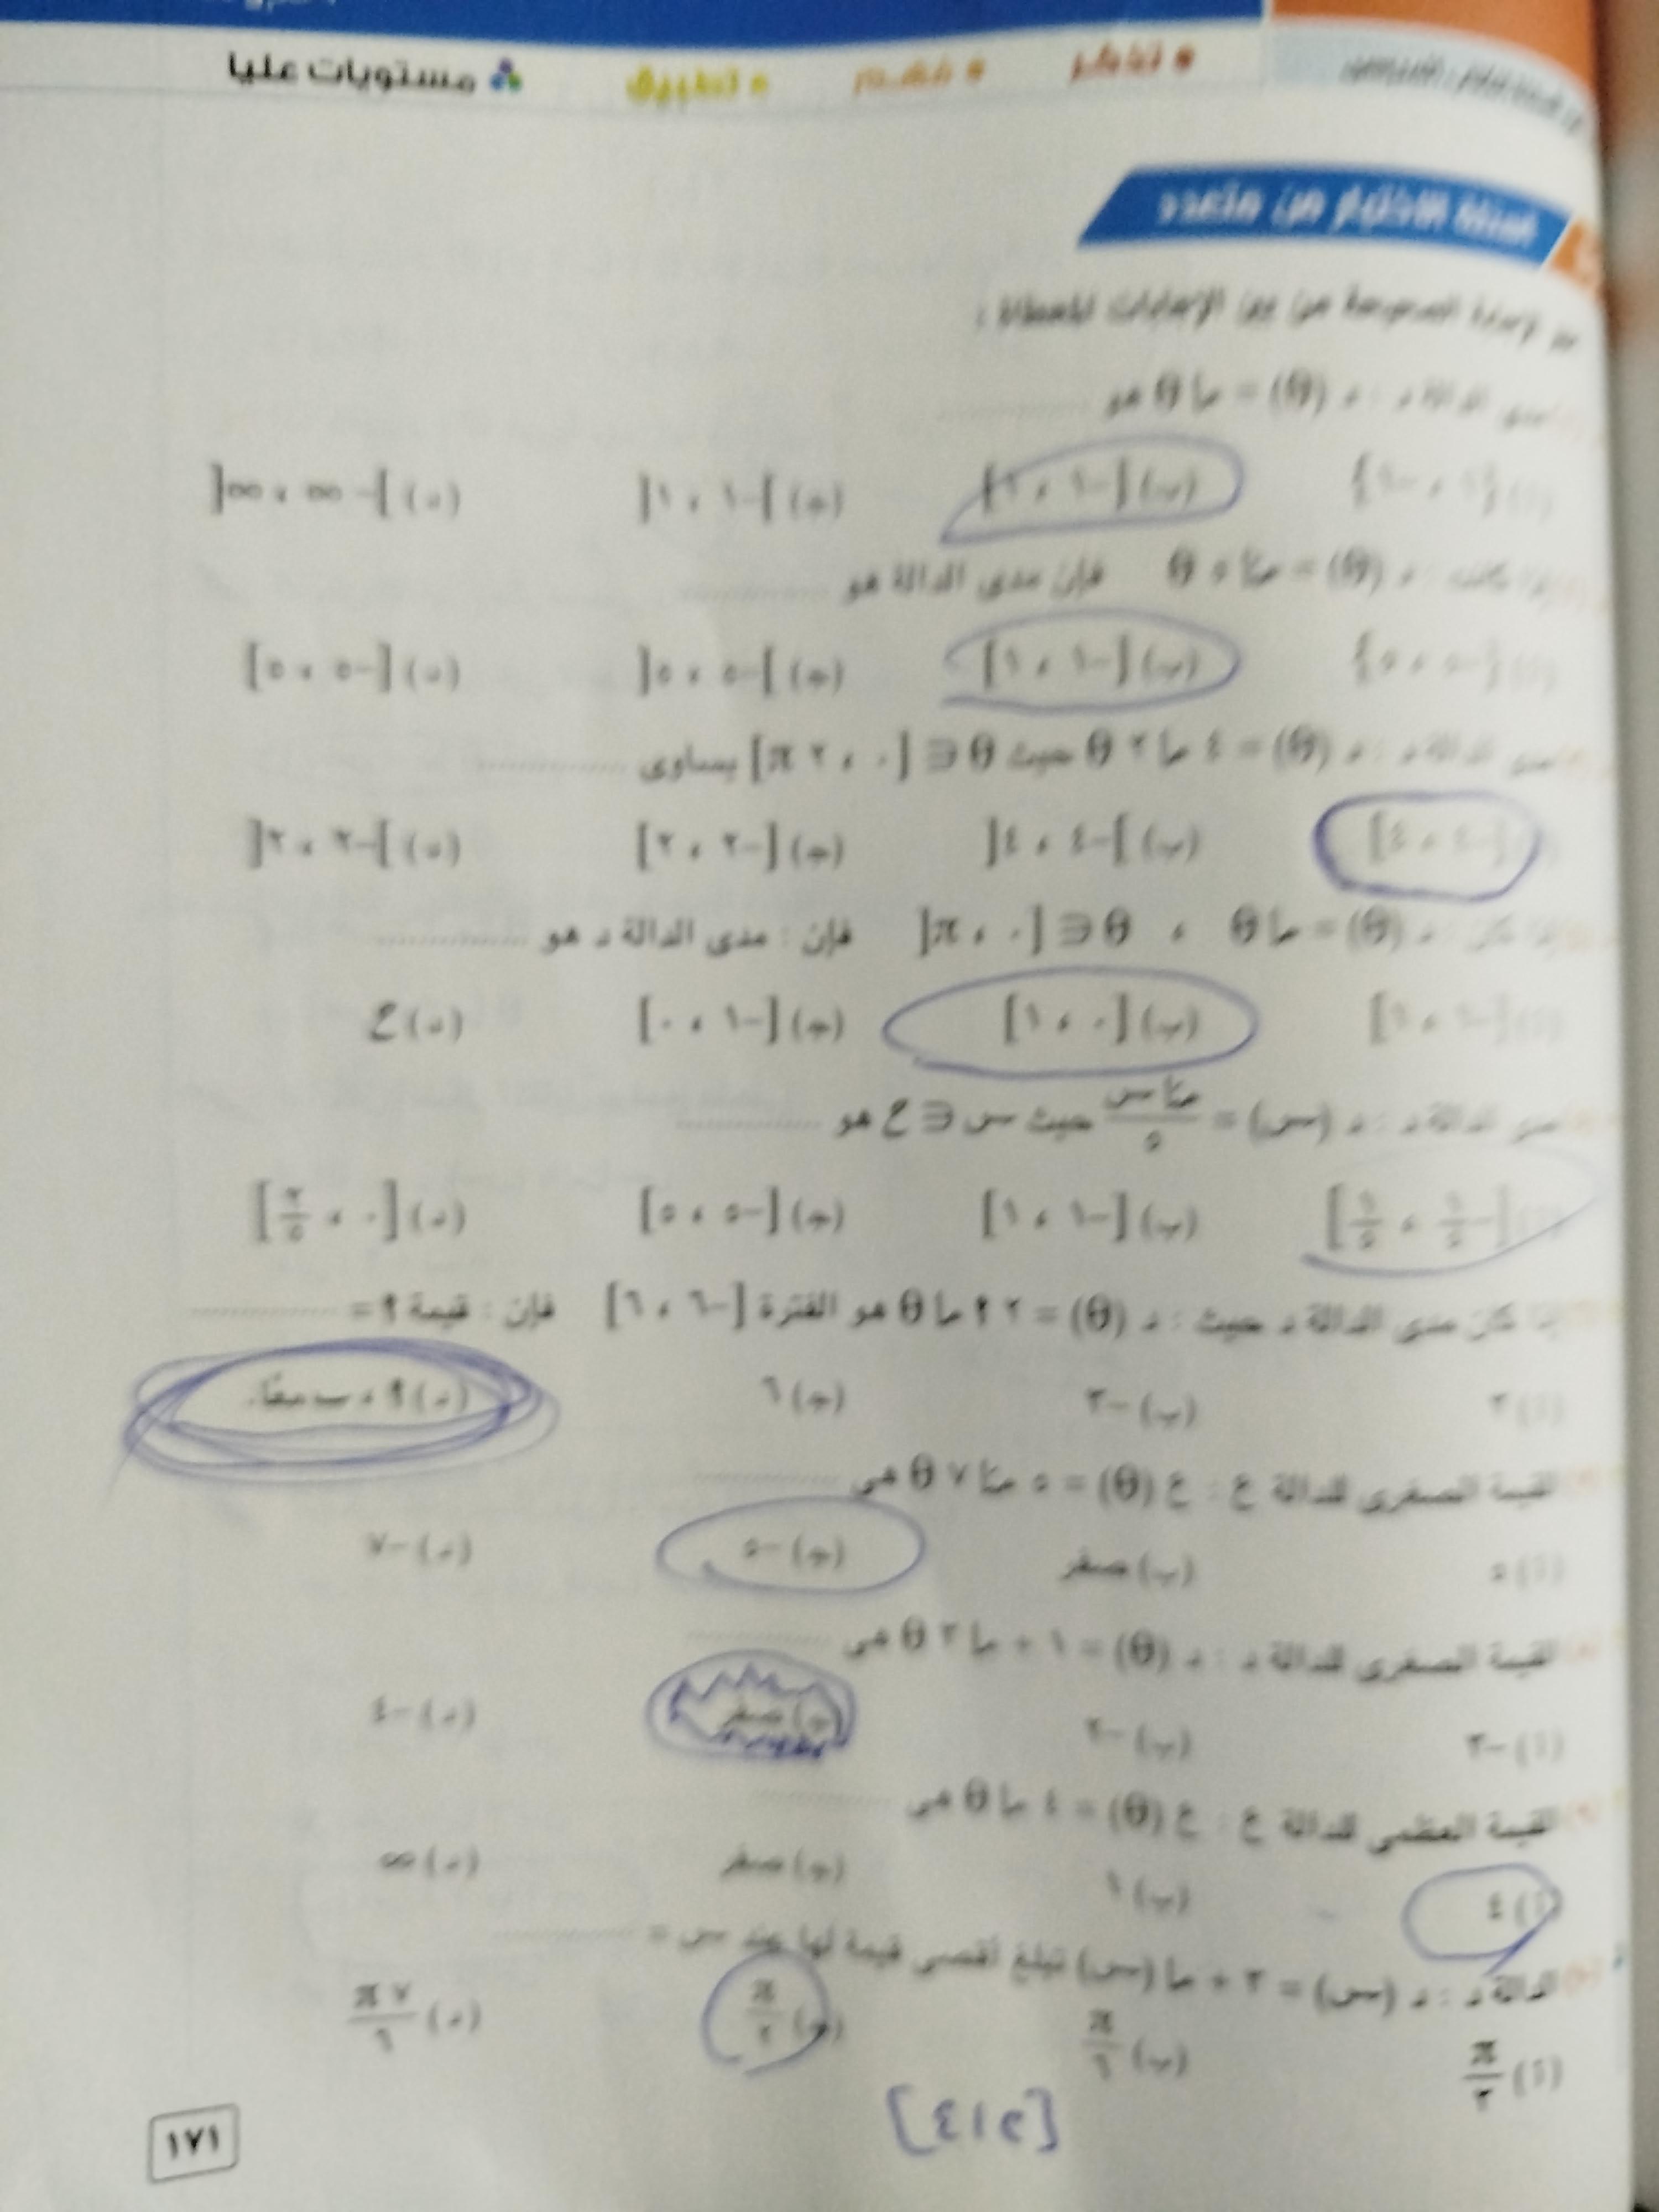 • تذكر • فهم • تطبيق مستويات عليا
أسئلة الاختيار من متعدد
الإجابة الصحيحة من بين الإجابات المعطاة :
مدى الدالة د : د (θ) = ما θ هو
(ب) [-١ ، ١] (جـ) ]-١ ، ١[ (د) ]-∞ ، ∞[
كانت : د (θ) = منا ٥ θ فإن مدى الدالة هو
{-٥ ، ٥} (ب) [-١ ، ١] (جـ) ]-٥ ، ٥[ (د) [-٥ ، ٥]
مدى الدالة د : د (θ) = ٤ ما ٢ θ حيث θ ∈ [٠ ، ٢ π] يساوى
[-٤ ، ٤] (ب) ]-٤ ، ٤[ (جـ) [-٢ ، ٢] (د) ]-٢ ، ٢[
إذا كان : د (θ) = ما θ ، θ ∈ [٠ ، π[ فإن : مدى الدالة د هو
[-١ ، ١] (ب) [٠ ، ١] (جـ) [-١ ، ٠] (د) ع
مدى الدالة د : د (س) = منا س / ٥ حيث س ∈ ع هو
[-١/٥ ، ١/٥] (ب) [-١ ، ١] (جـ) [-٥ ، ٥] (د) [٠ ، ٢/٥]
إذا كان مدى الدالة د حيث : د (θ) = ٢ ٩ ما θ هو الفترة [-٦ ، ٦] فإن : قيمة ٩ =
(أ) ٣ (ب) -٣ (جـ) ٦ (د) ٩ ، ب معًا.
القيمة الصغرى للدالة ع : ع (θ) = ٥ منا ٧ θ هى
(أ) ٥ (ب) صفر (جـ) -٥ (د) -٧
القيمة الصغرى للدالة د : د (θ) = ١ + ما ٣ θ هى
(أ) -٣ (ب) -٢ (جـ) صفر (د) -٤
القيمة العظمى للدالة ع : ع (θ) = ٤ ما θ هى
(أ) ٤ (ب) ١ (جـ) صفر (د) ∞
الدالة د : د (س) = ٣ + ما (س) تبلغ أقصى قيمة لها عند س =
(أ) π/٣ (ب) π/٦ (جـ) π/٢ (د) ٧ π/٦
[٢،٤]
١٧١